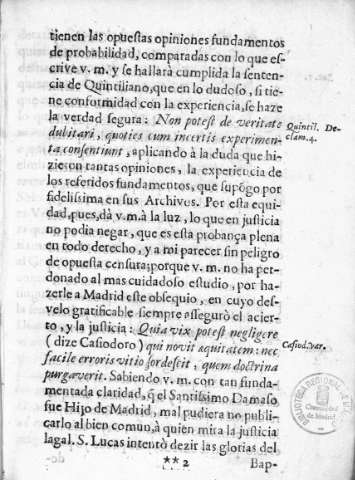 tienen las opuestas opiniones fundamentos
de probabilidad, comparadas con lo que es-
crive v. m. y se hallarà cumplida la senten-
cia de Quintiliano, que en lo dudoso, si tie-
ne conformidad con la experiencia, se haze
la verdad segura: Non potest de veritate
dubitari, quoties cum incertis experimen-
ta consentiunt, aplicando à la duda que hi-
zieron tantas opiniones, la experiencia de
los referidos fundamentos, que supõgo por
fidelissima en sus Archivos. Por esta equi-
dad, pues, dà v. m. à la luz, lo que en justicia
no podia negar, que es esta probança plena
en todo derecho, y a mi parecer sin peligro
de opuesta censura; porque v. m. no ha per-
donado al mas cuidadoso estudio, por ha-
zerle a Madrid este obsequio, en cuyo des-
velo gratificable siempre assegurò el acier-
to, y la justicia: Quia vix potest negligere
(dize Casiodoro) qui novit æquitatem: nec
facile erroris vitio sordescit, quem doctrina
purgaverit. Sabiendo v. m. con tan funda-
mentada claridad, q̃ el Santissimo Damaso
fue Hijo de Madrid, mal pudiera no publi-
carlo al bien comun, à quien mira la justicia
lagal. S. Lucas intentò dezir las glorias del
** 2
Bap-
Quintil. De-
clam. 4.
Casiod. var.
BIBLIOTECA REGIONAL
Comunidad
de Madrid